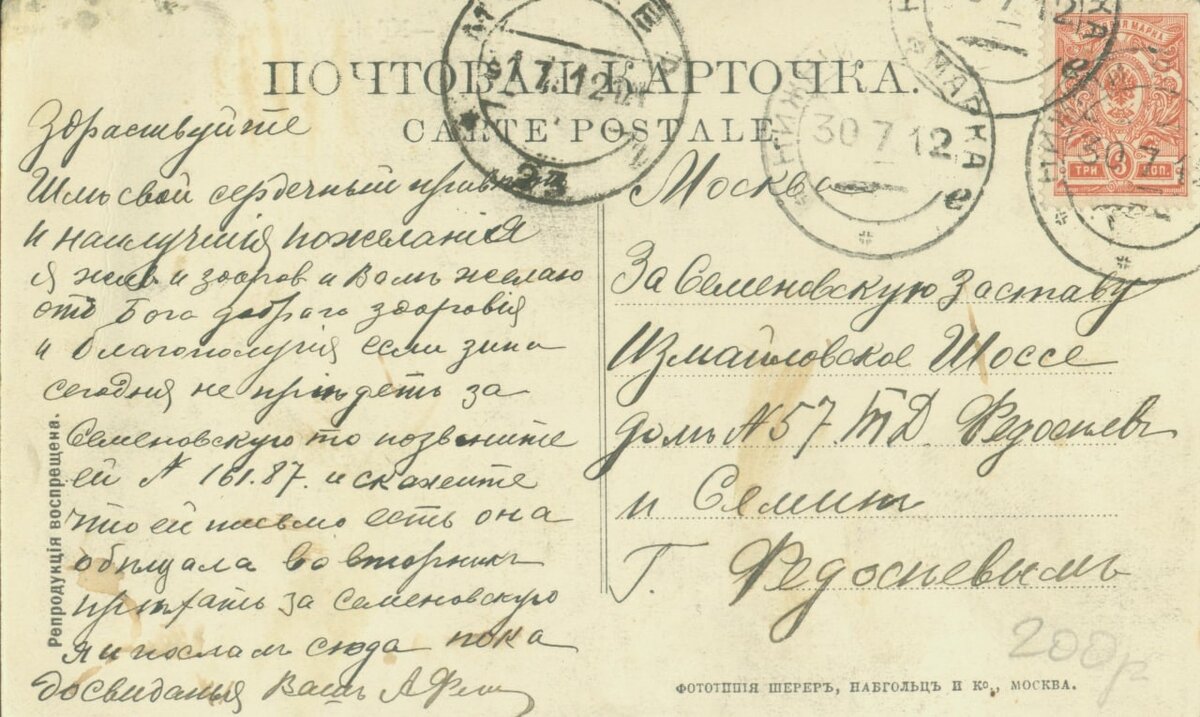 ПОЧТОВАЯ КАРТОЧКА.
CARTE POSTALE
Здраствуйте
Шлю свой сердечный привѣт
и наилучшія пожеланія
я жив и здоров и Вамъ желаю
отъ Бога добраго здоровія
и благополучія если зина
сегодня не пріидетъ за
Семеновскую то позвоните
ей № 161.87. и скажите
что ей письмо есть она
обѣщала во вторникъ
пріѣхать за Семеновскую
я и послалъ сюда пока
досвиданья Вашъ А
Москва
За Семеновскую Заставу
Измайловское Шоссе
домъ № 57. ТД. Федосѣевъ
и Семинъ
Г. Федосѣевымъ
Репродукція воспрещена.
ФОТОТИПІЯ ШЕРЕРЪ, НАБГОЛЬЦЪ И Ко, МОСКВА.
200р
МОСКВА
1.7.12
23
30 7 12
ЯРМАРКА
е
30 7 12
7 12
ТРИ 3 КОП.